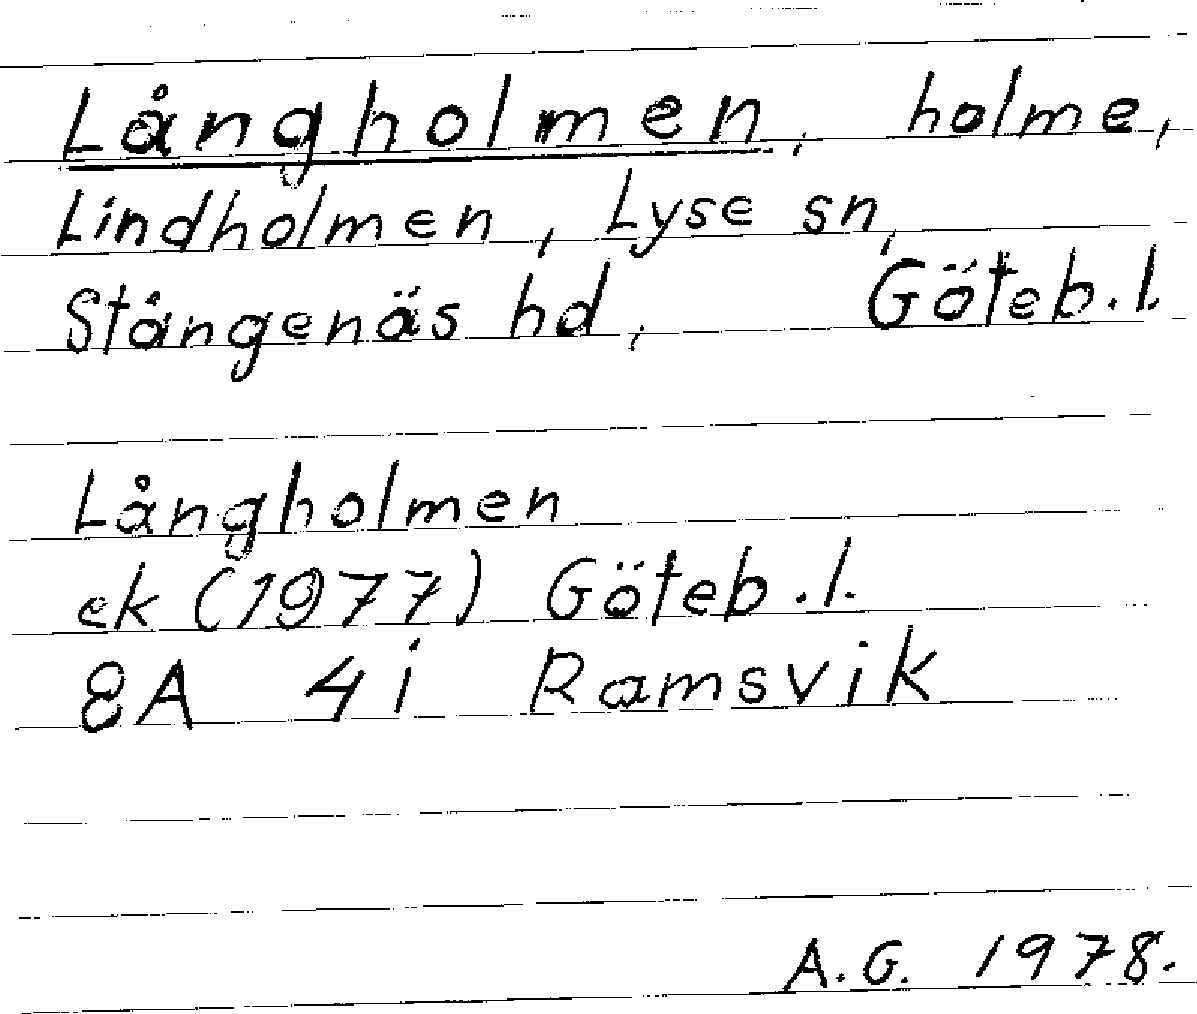 Långholmen, holme,
Lindholmen, Lyse sn,
Stångenäs hd, Göteb.l.
Långholmen
ek (1977) Göteb.l.
8A 4i Ramsvik
A.G. 1978.